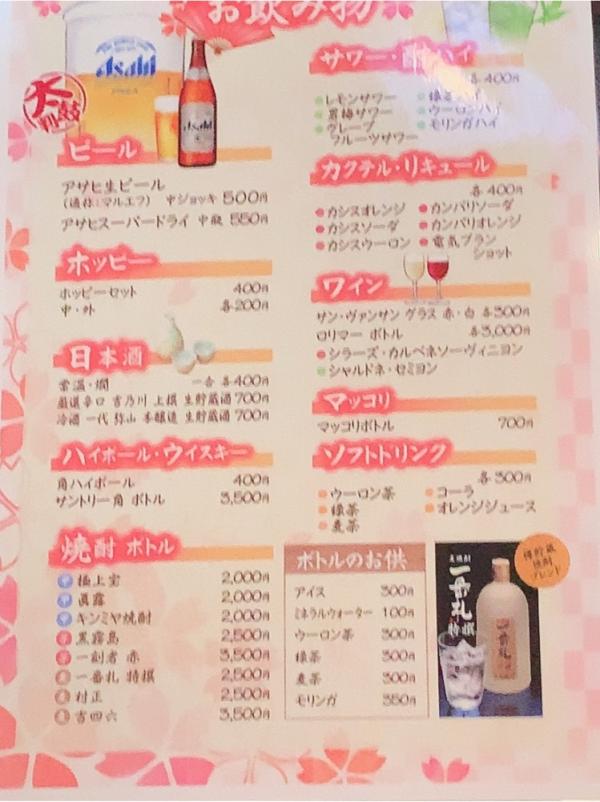 お飲み物
Asahi
Asahi
太鼓判
ビール
アサヒ生ビール
(通称:マルエフ) 中ジョッキ 500円
アサヒスーパードライ 中瓶 550円
ホッピー
ホッピーセット 400円
中・外 各200円
日本酒
常温・燗 一合 各400円
厳選辛口 吉乃川 上撰 生貯蔵酒 700円
冷酒 一代 弥山 本醸造 生貯蔵酒 700円
ハイボール・ウイスキー
角ハイボール 400円
サントリー角 ボトル 3,500円
焼酎 ボトル
極上宝 2,000円
眞露 2,000円
キンミヤ焼酎 2,000円
黒霧島 2,500円
一刻者 赤 3,500円
一番札 特撰 2,500円
村正 2,500円
吉四六 3,500円
サワー・酎ハイ
各400円
レモンサワー
男梅サワー
グレープ
フルーツサワー
緑茶ハイ
ウーロンハイ
モリンガハイ
カクテル・リキュール
各400円
カシスオレンジ
カシスソーダ
カシスウーロン
カンパリソーダ
カンパリオレンジ
電気ブラン
ショット
ワイン
サン・ヴァンサン グラス 赤・白 各300円
ロリマー ボトル 各3,000円
シラーズ・カルベネソーヴィニヨン
シャルドネ・セミヨン
マッコリ
マッコリボトル 700円
ソフトドリンク
各300円
ウーロン茶
緑茶
麦茶
コーラ
オレンジジュース
ボトルのお供
アイス 300円
ミネラルウォーター 100円
ウーロン茶 300円
緑茶 300円
麦茶 300円
モリンガ 350円
麦焼酎
一番札
特撰
一番札
樽貯蔵
焼酎
ブレンド